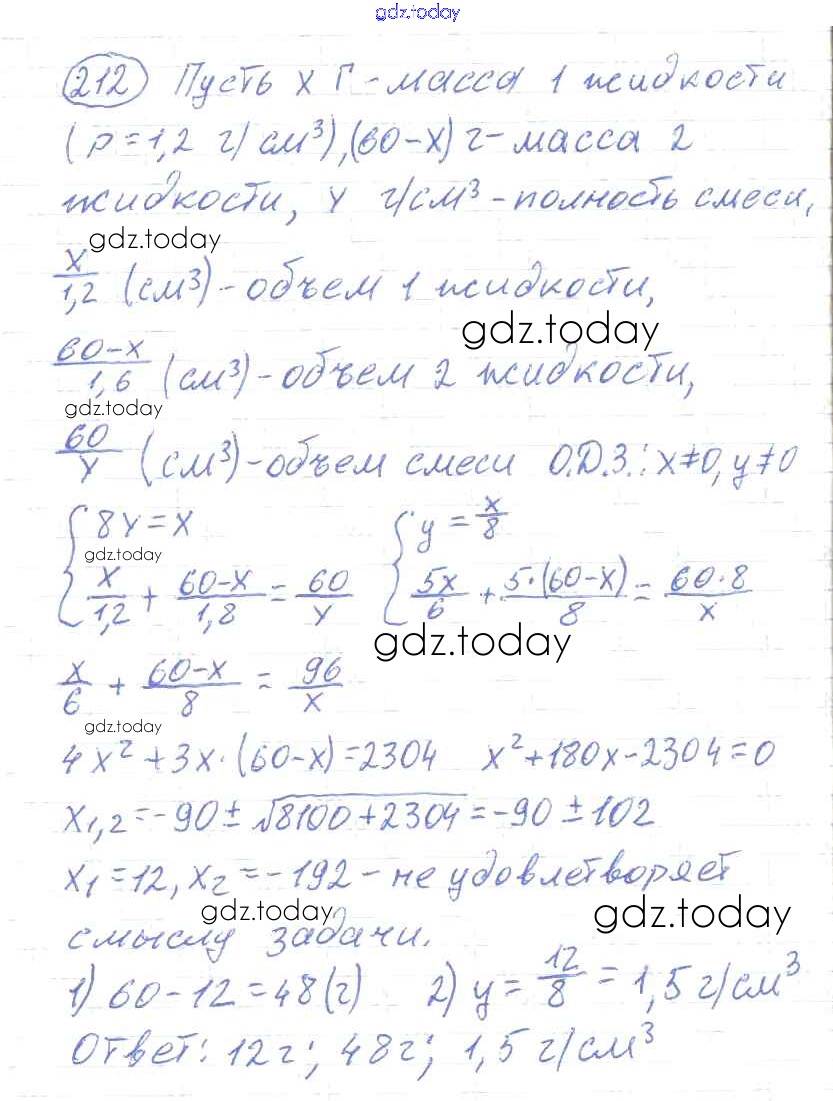 gdz.today
212 Пусть x г - масса 1 жидкости
(p = 1,2 г/см³), (60-x) г - масса 2
жидкости, y г/см³ - полность смеси,
gdz.today
x/1,2 (см³) - объем 1 жидкости,
gdz.today
60-x/1,6 (см³) - объем 2 жидкости,
gdz.today
60/y (см³) - объем смеси О.Д.З.: x≠0, y≠0
{ 8y = x { y = x/8
gdz.today
x/1,2 + 60-x/1,8 = 60/y 5x/6 + 5·(60-x)/8 = 60·8/x
gdz.today
x/6 + 60-x/8 = 96/x
gdz.today
4x² + 3x·(60-x) = 2304 x² + 180x - 2304 = 0
x1,2 = -90 ± √8100 + 2304 = -90 ± 102
x1 = 12, x2 = -192 - не удовлетворяет
gdz.today gdz.today
смыслу задачи.
1) 60 - 12 = 48 (г) 2) y = 12/8 = 1,5 г/см³
Ответ: 12г; 48г; 1,5 г/см³